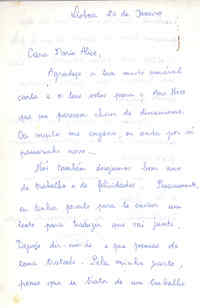 Lisboa 20 de Janeiro
Cara Maria Alice,
Agradeço a tua muito amável
carta e o teu votos para o Ano Novo
que me parecem cheios de dinamismo.
Ou muito me engano, ou anda por aí
passarinho novo...
Nós também desejamos bom ano
de trabalho e de felicidades.
eu tinha pensado para te enviar um
texto para traduzir que vai junto.
dir-me-ás o que pensas do
tema tratado. Pela minha parte,
penso que se trata de um trabalho